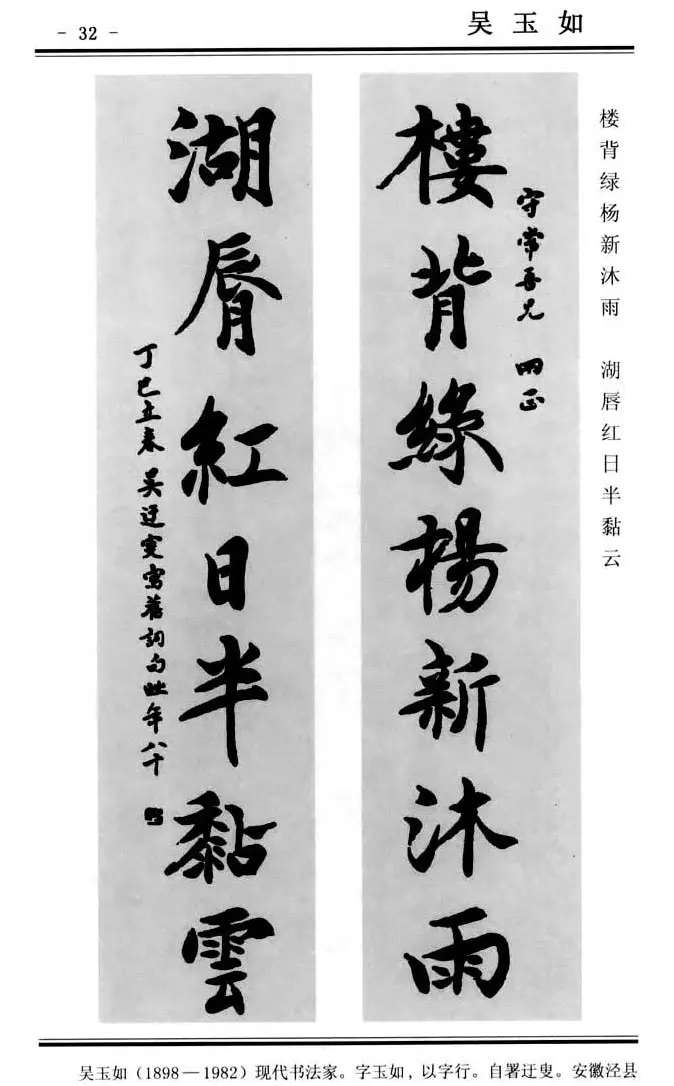 - 32 -
吴玉如
楼背绿杨新沐雨 湖唇红日半黏云
守常吾兄 正
樓背綠楊新沐雨
湖脣紅日半黏雲
丁巳立春 吴迂叟寫舊詞句 年八十
吴玉如(1898—1982)现代书法家。字玉如,以字行。自署迂叟。安徽泾县